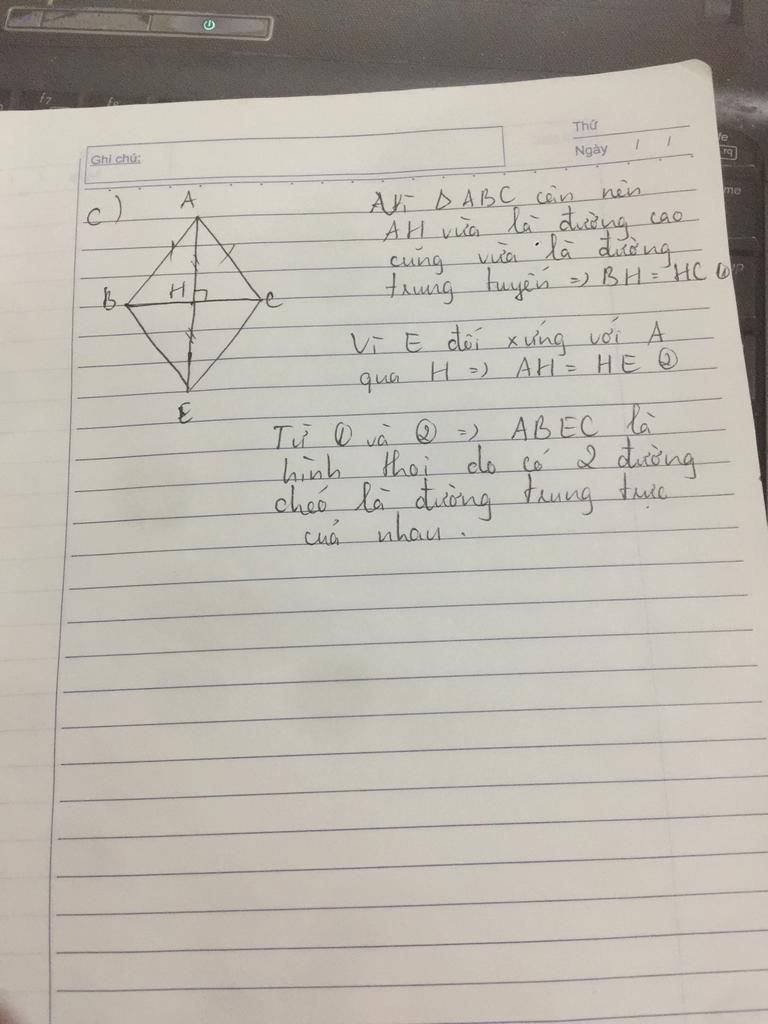 Ghi chú:
Thứ
Ngày / /
f7
me
c)
A
B
H
C
E
Vì Δ ABC cân nên
AH vừa là đường cao
cũng vừa là đường
trung tuyến => BH = HC ①
Vì E đối xứng với A
qua H => AH = HE ②
Từ ① và ② => ABEC là
hình thoi do có 2 đường
chéo là đường trung trực
của nhau.